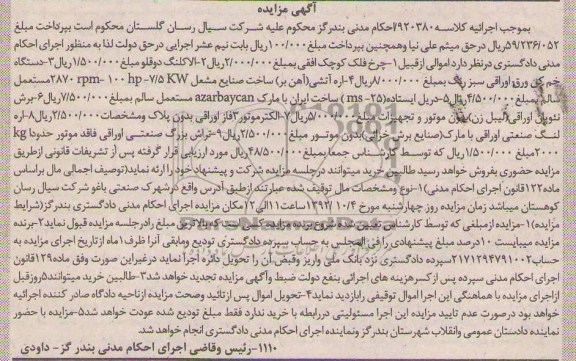 آگهی مزایده
بموجب اجرائیه کلاسه ۹۲۰۳۸۰/احکام مدنی بندرگز محکوم علیه شرکت سیال رسان گلستان محکوم است بپرداخت مبلغ
۵۹/۲۳۶/۰۵۲ریال درحق میثم علی نیا وهمچنین بپرداخت مبلغ ۱۰۰/۰۰۰ریال بابت نیم عشر اجرایی درحق دولت لذا به منظور اجرای احکام
مدنی دادگستری درنظر دارد اموالی ازقبیل۱-چرخ فلک کوچک افقی بمبلغ ۲/۰۰۰/۰۰۰ریال۲-الاکلنگ دوقلو مبلغ ۱/۵۰۰/۰۰۰ریال۳-دستگاه
خم کن ورق اوراقی سبز رنگ بمبلغ ۸/۰۰۰/۰۰۰ریال۴-اره آتشی(آهن بر) ساخت صنایع مشعل ۷/۵ KW- ۱۰۰ hp -۲۸۷۰ rpmمستعمل
سالم بمبلغ ۴/۵۰۰/۰۰۰ریال۵-دریل ایستاده(ms -۲۵) ساخت ایران با مارک azarbaycan مستعمل سالم بمبلغ ۷/۵۰۰/۰۰۰ریال۶-برش
نئوپان اوراقی(لیبل زن)بدون موتور و تجهیزات مبلغ ۵/۰۰۰/۰۰۰ریال۷-الکتروموتور۳فاز اوراقی بدون پلاک ومشخصات۲/۵۰۰/۰۰۰ریال۸-اره
لنگ صنعتی اوراقی با مارک(صنایع برش خراج)بدون موتور مبلغ ۲/۵۰۰/۰۰۰ریال۹-خراش بزرگ صنعتی اوراقی فاقد موتور حدودا kg
۲۰۰۰مبلغ ۱/۵۰۰/۰۰۰ریال که توسط کارشناس جمعا بمبلغ۴۸/۵۰۰/۰۰۰ریال مورد ارزیابی قرار گرفته پس از تشریفات قانونی ازطریق
مزایده حضوری بفروش خواهد رسید طالبین خرید میتوانند درجلسه مزایده شرکت و پیشنهاد خود را ارائه نماید(توصیف اجمالی مال براساس
ماده۱۲۲قانون اجرای احکام مدنی)۱-نوع ومشخصات مال توقیف شده عبارتند ازطبق آدرس واقع درشهرک صنعتی یاغو شرکت سیال رسان
کوهستان میباشد زمان مزایده روز چهارشنبه مورخ ۱۳۹۲/۱۰/۴ ساعت۱۱الی۱۲مکان مزایده اجرای احکام مدنی دادگستری بندرگز(شرایط
مزایده)۱-مزایده ازمبلغی که توسط کارشناس تعیین شده شروع برنده مزایده کسی است که بالاترین مبلغ رادرجلسه مزایده قبول نماید۲-برنده
مزایده میبایست ۱۰درصد مبلغ پیشنهادی را فی المجلس به حساب سپرده دادگستری تودیع ومابقی آنرا ظرف۱ماه ازتاریخ اجرای مزایده به
حساب۲۱۷۱۲۹۴۷۹۱۰۰۲سپرده دادگستری نزد بانک ملی واریز وقبض آن را تحویل دائره اجرا نماید درغیراین صورت وفق ماده۱۲۹قانون
اجرای احکام مدنی سپرده پس از کسرهزینه های اجرائی بنفع دولت ضبط وآگهی مزایده تجدید خواهد شد۳-طالبین خرید میتوانند۵روزقبل
ازاجرای مزایده با هماهنگی این اجرا اموال توقیفی رابازدید نماید۴-تحویل اموال پس ازتائید وصحت مزایده ازناحیه دادگاه صادر کننده اجرائیه
خواهد بود درصورت عدم تایید مزایده این اجرا مسئولیتی دررابطه با خرید ندارد فقط مبلغ تودیع شده عودت خواهد شد۵-مزایده با حضور
نماینده دادستان عمومی وانقلاب شهرستان بندرگز ونماینده اجرای احکام مدنی دادگستری انجام خواهد شد.
۱۱۱۰-رئیس وقاضی اجرای احکام مدنی بندر گز- داودی